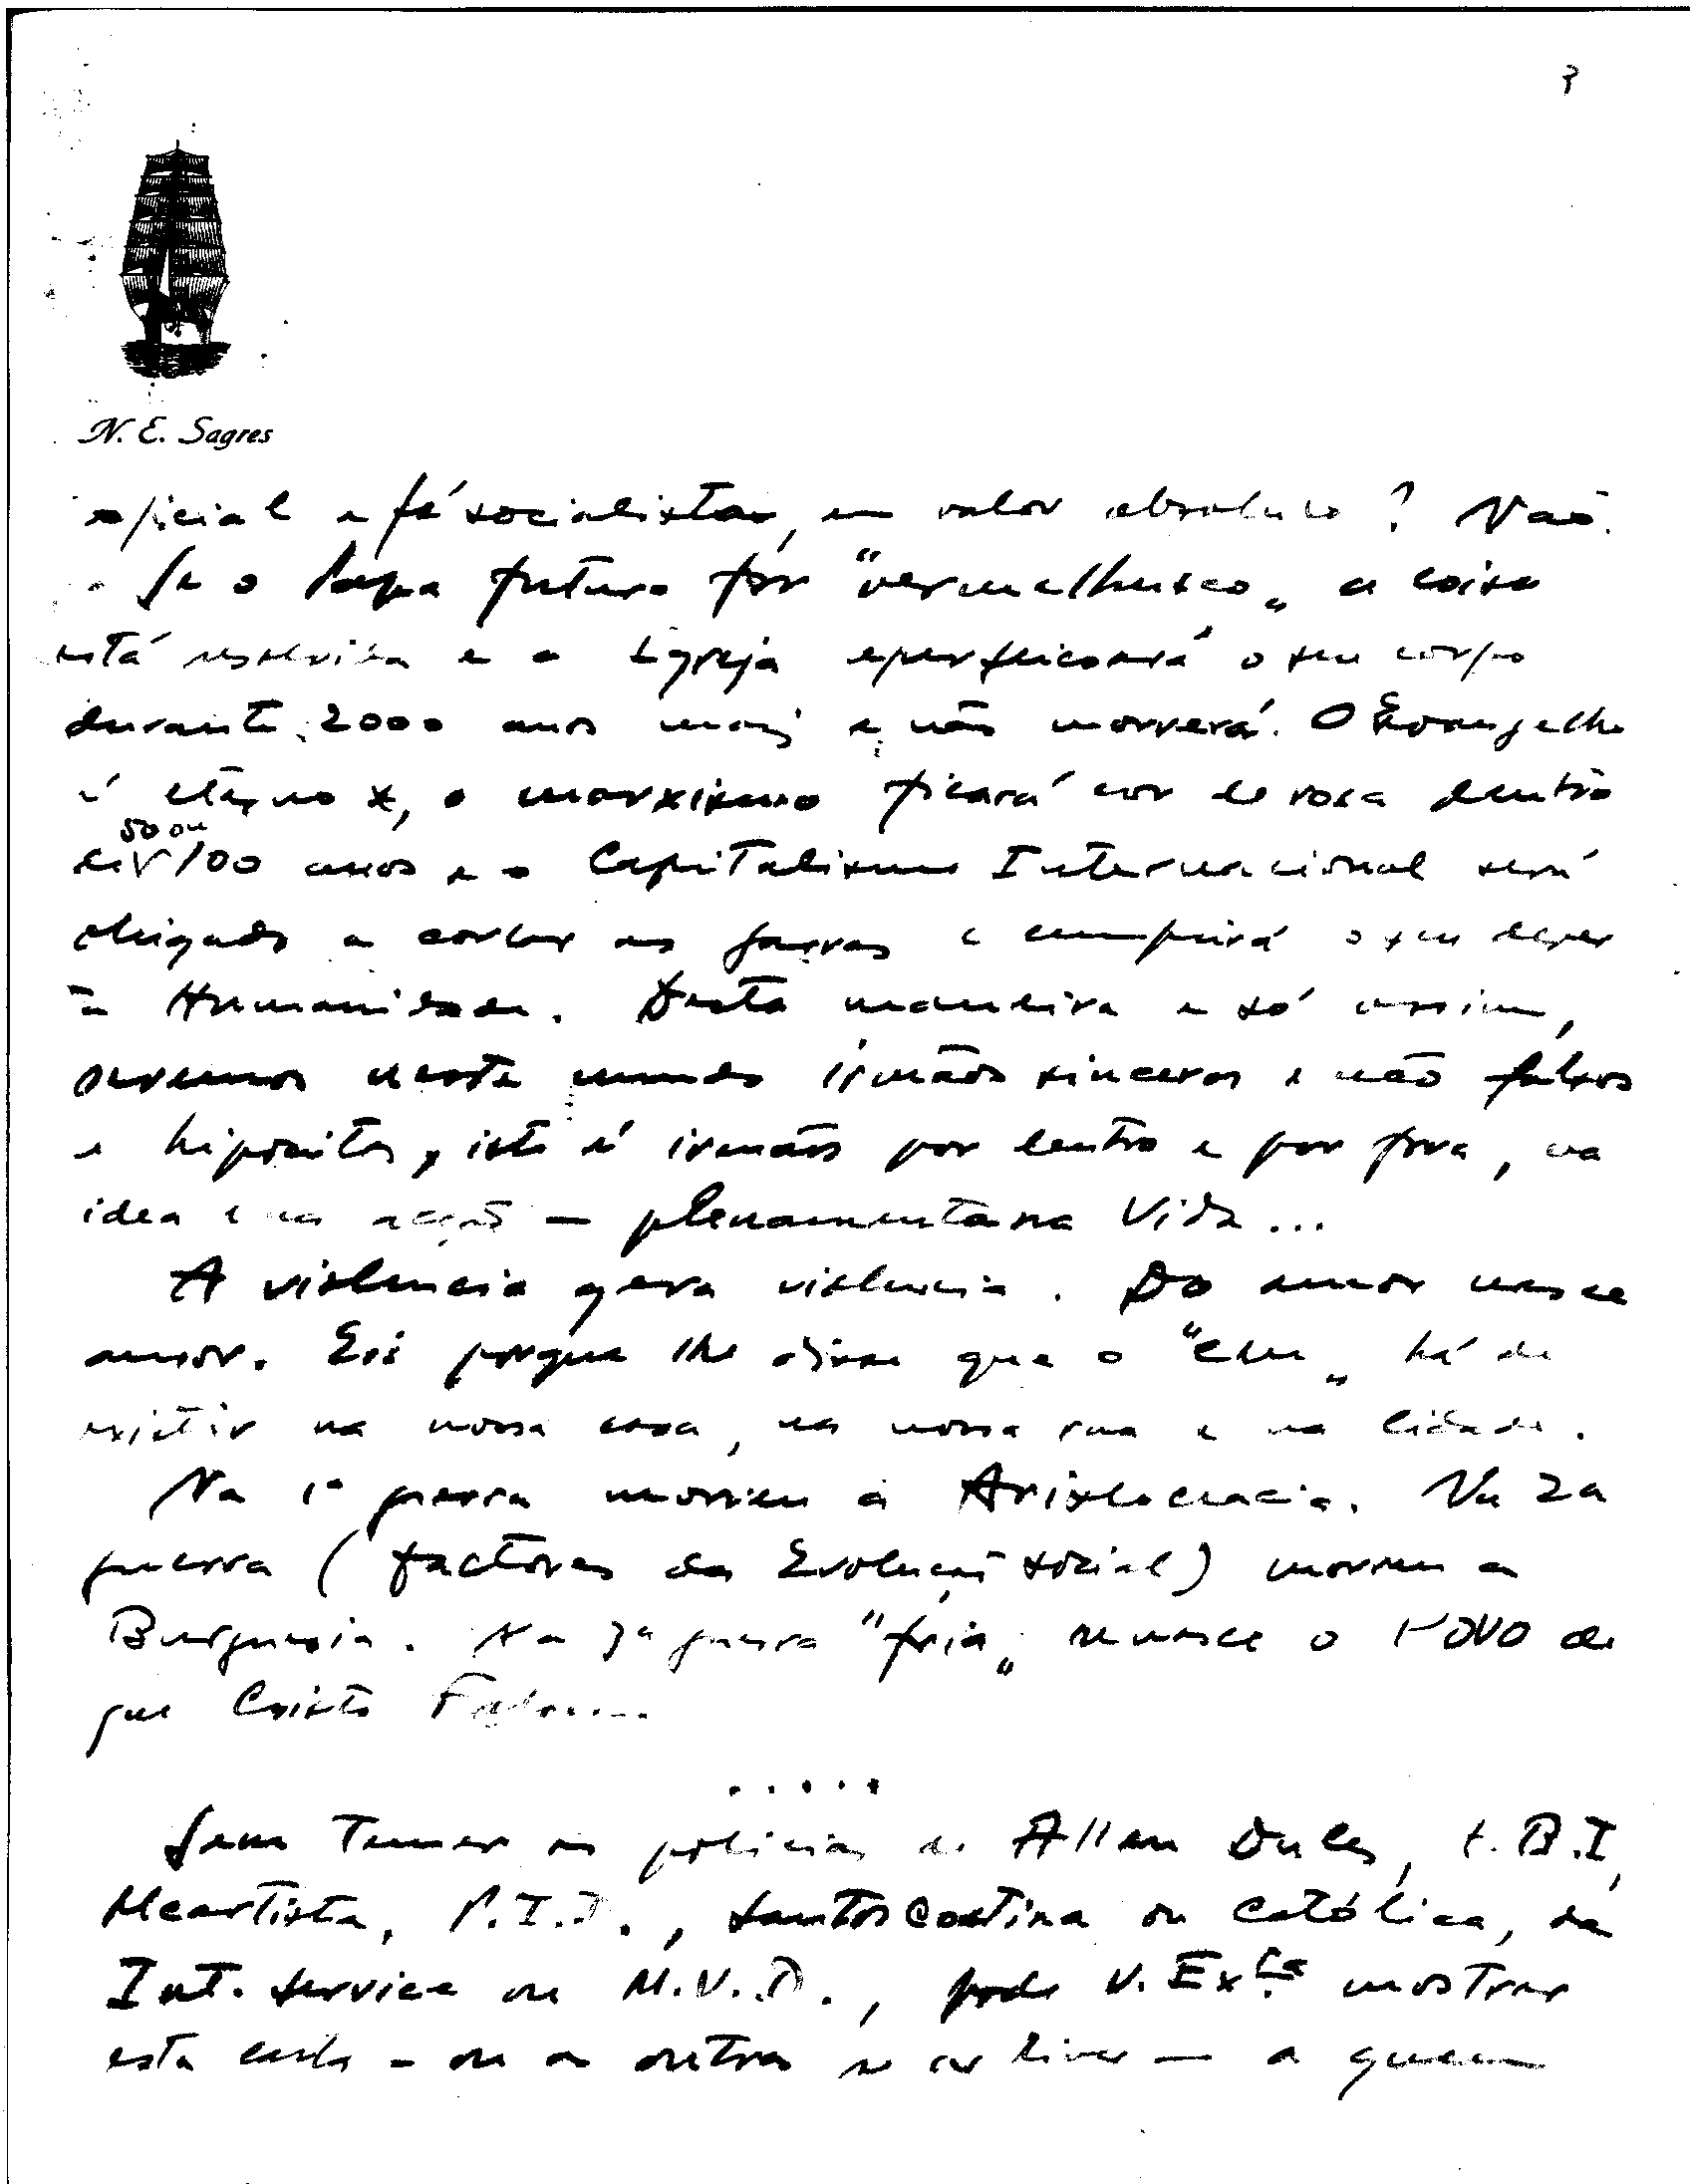 3
N. E. Sagres
oficial e fé socialista, em valor absoluto? Não.
Se o Papa futuro fôr "vermelhusco" a coisa
está resolvida e a Igreja aperfeiçoará o seu corpo
durante 2000 anos mais e não morrerá. O Evangelho
é eterno, o marxismo ficará cor de rosa dentro
50 ou
de V 100 anos e o Capitalismo Internacional será
obrigado a cortar as garras e cumprirá o seu dever
Humanidade. Desta maneira e só assim,
seremos neste mundo irmãos sinceros e não falsos
e hipócritas, isto é irmãos por dentro e por fora, na
idea e na acção — plenamente na Vida...
A violencia gera violencia. Do amor nasce
amor. Eis porque lhe disse que o "céu" há de
existir na nossa casa, na nossa rua e na cidade.
Na 1ª guerra morreu a Aristocracia. Na 2a
guerra (factores da Evolução social) morreu a
Burguesia. Na 3ª guerra "fria" renasce o POVO de
que Cristo Falou...
.....
Sem temer as policias de Allen Dules, F.B.I,
Mcartista, P.I.D., Santos Costina ou Católica, da
Int. Service ou M.V.D., pode V. Exᶜⁱᵃ mostrar
esta carta – ou a outra se a tiver — a quem